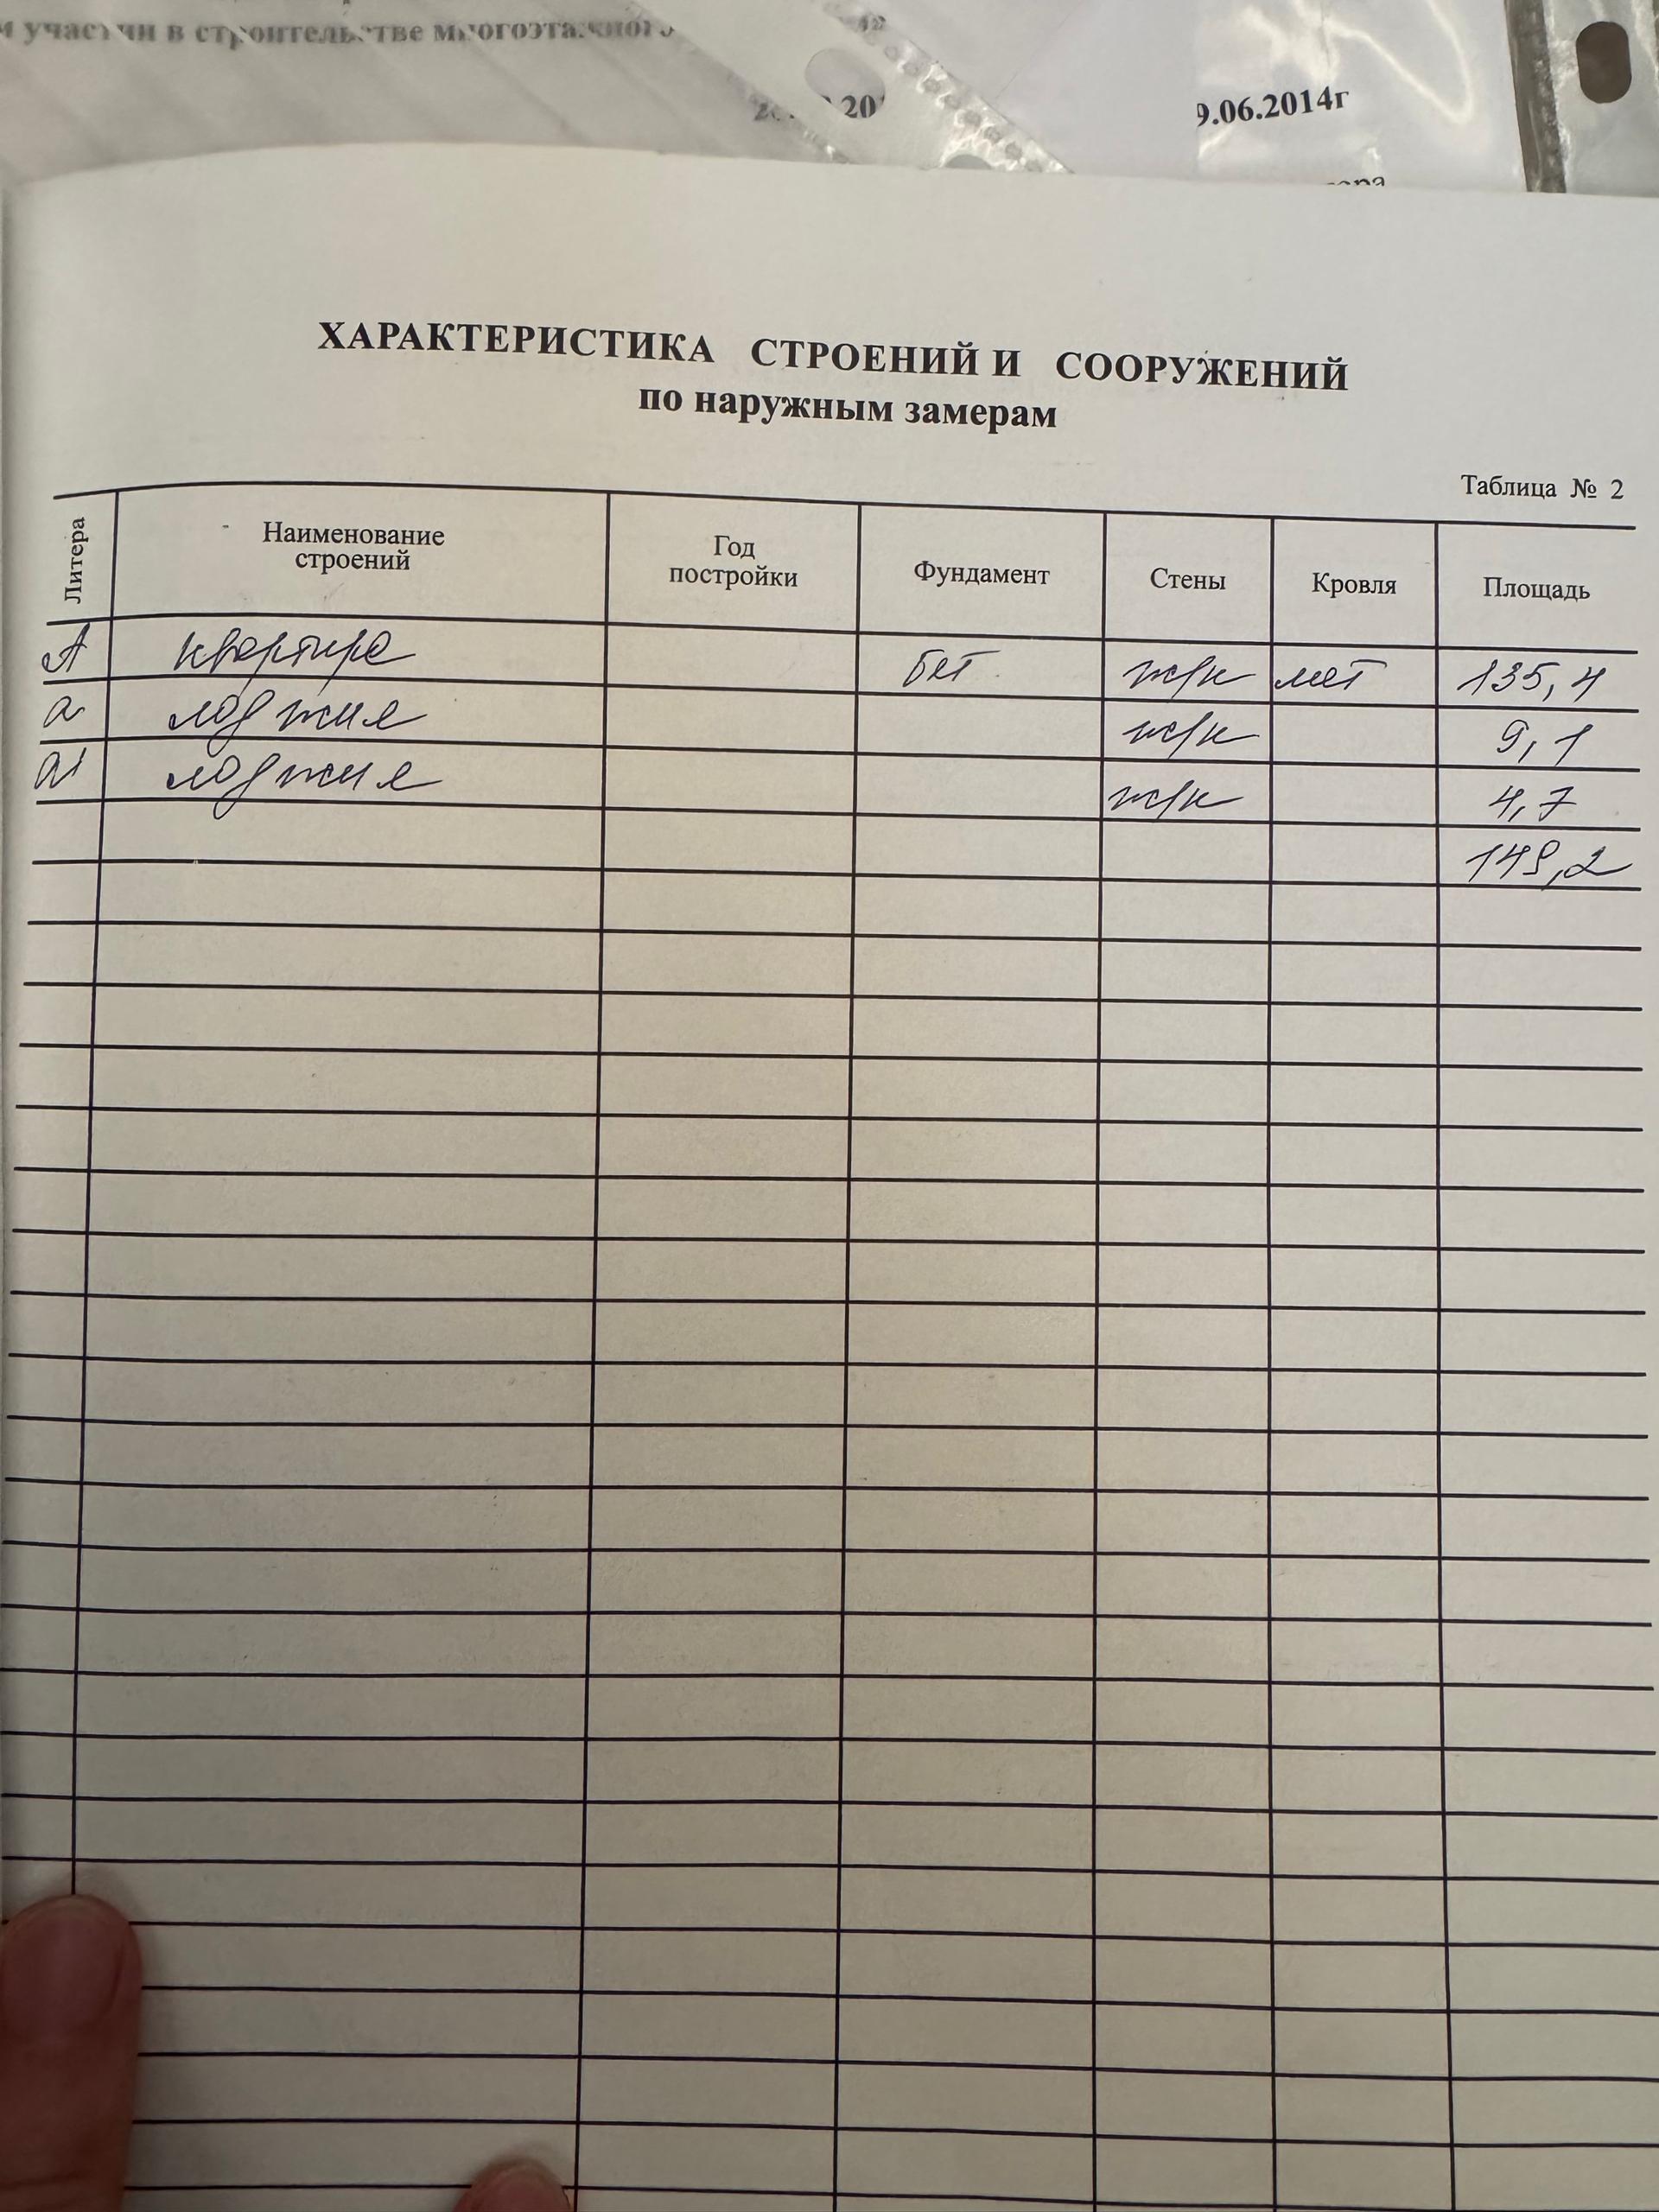 участии в строительстве многоэтажного
9.06.2014г
ХАРАКТЕРИСТИКА СТРОЕНИЙ И СООРУЖЕНИЙ
по наружным замерам
Таблица № 2
Литера Наименование строений Год постройки Фундамент Стены Кровля Площадь
А квартира бет ж/к мет 135,4
а лоджия ж/к 9,1
а' лоджия ж/к 4,7
149,2